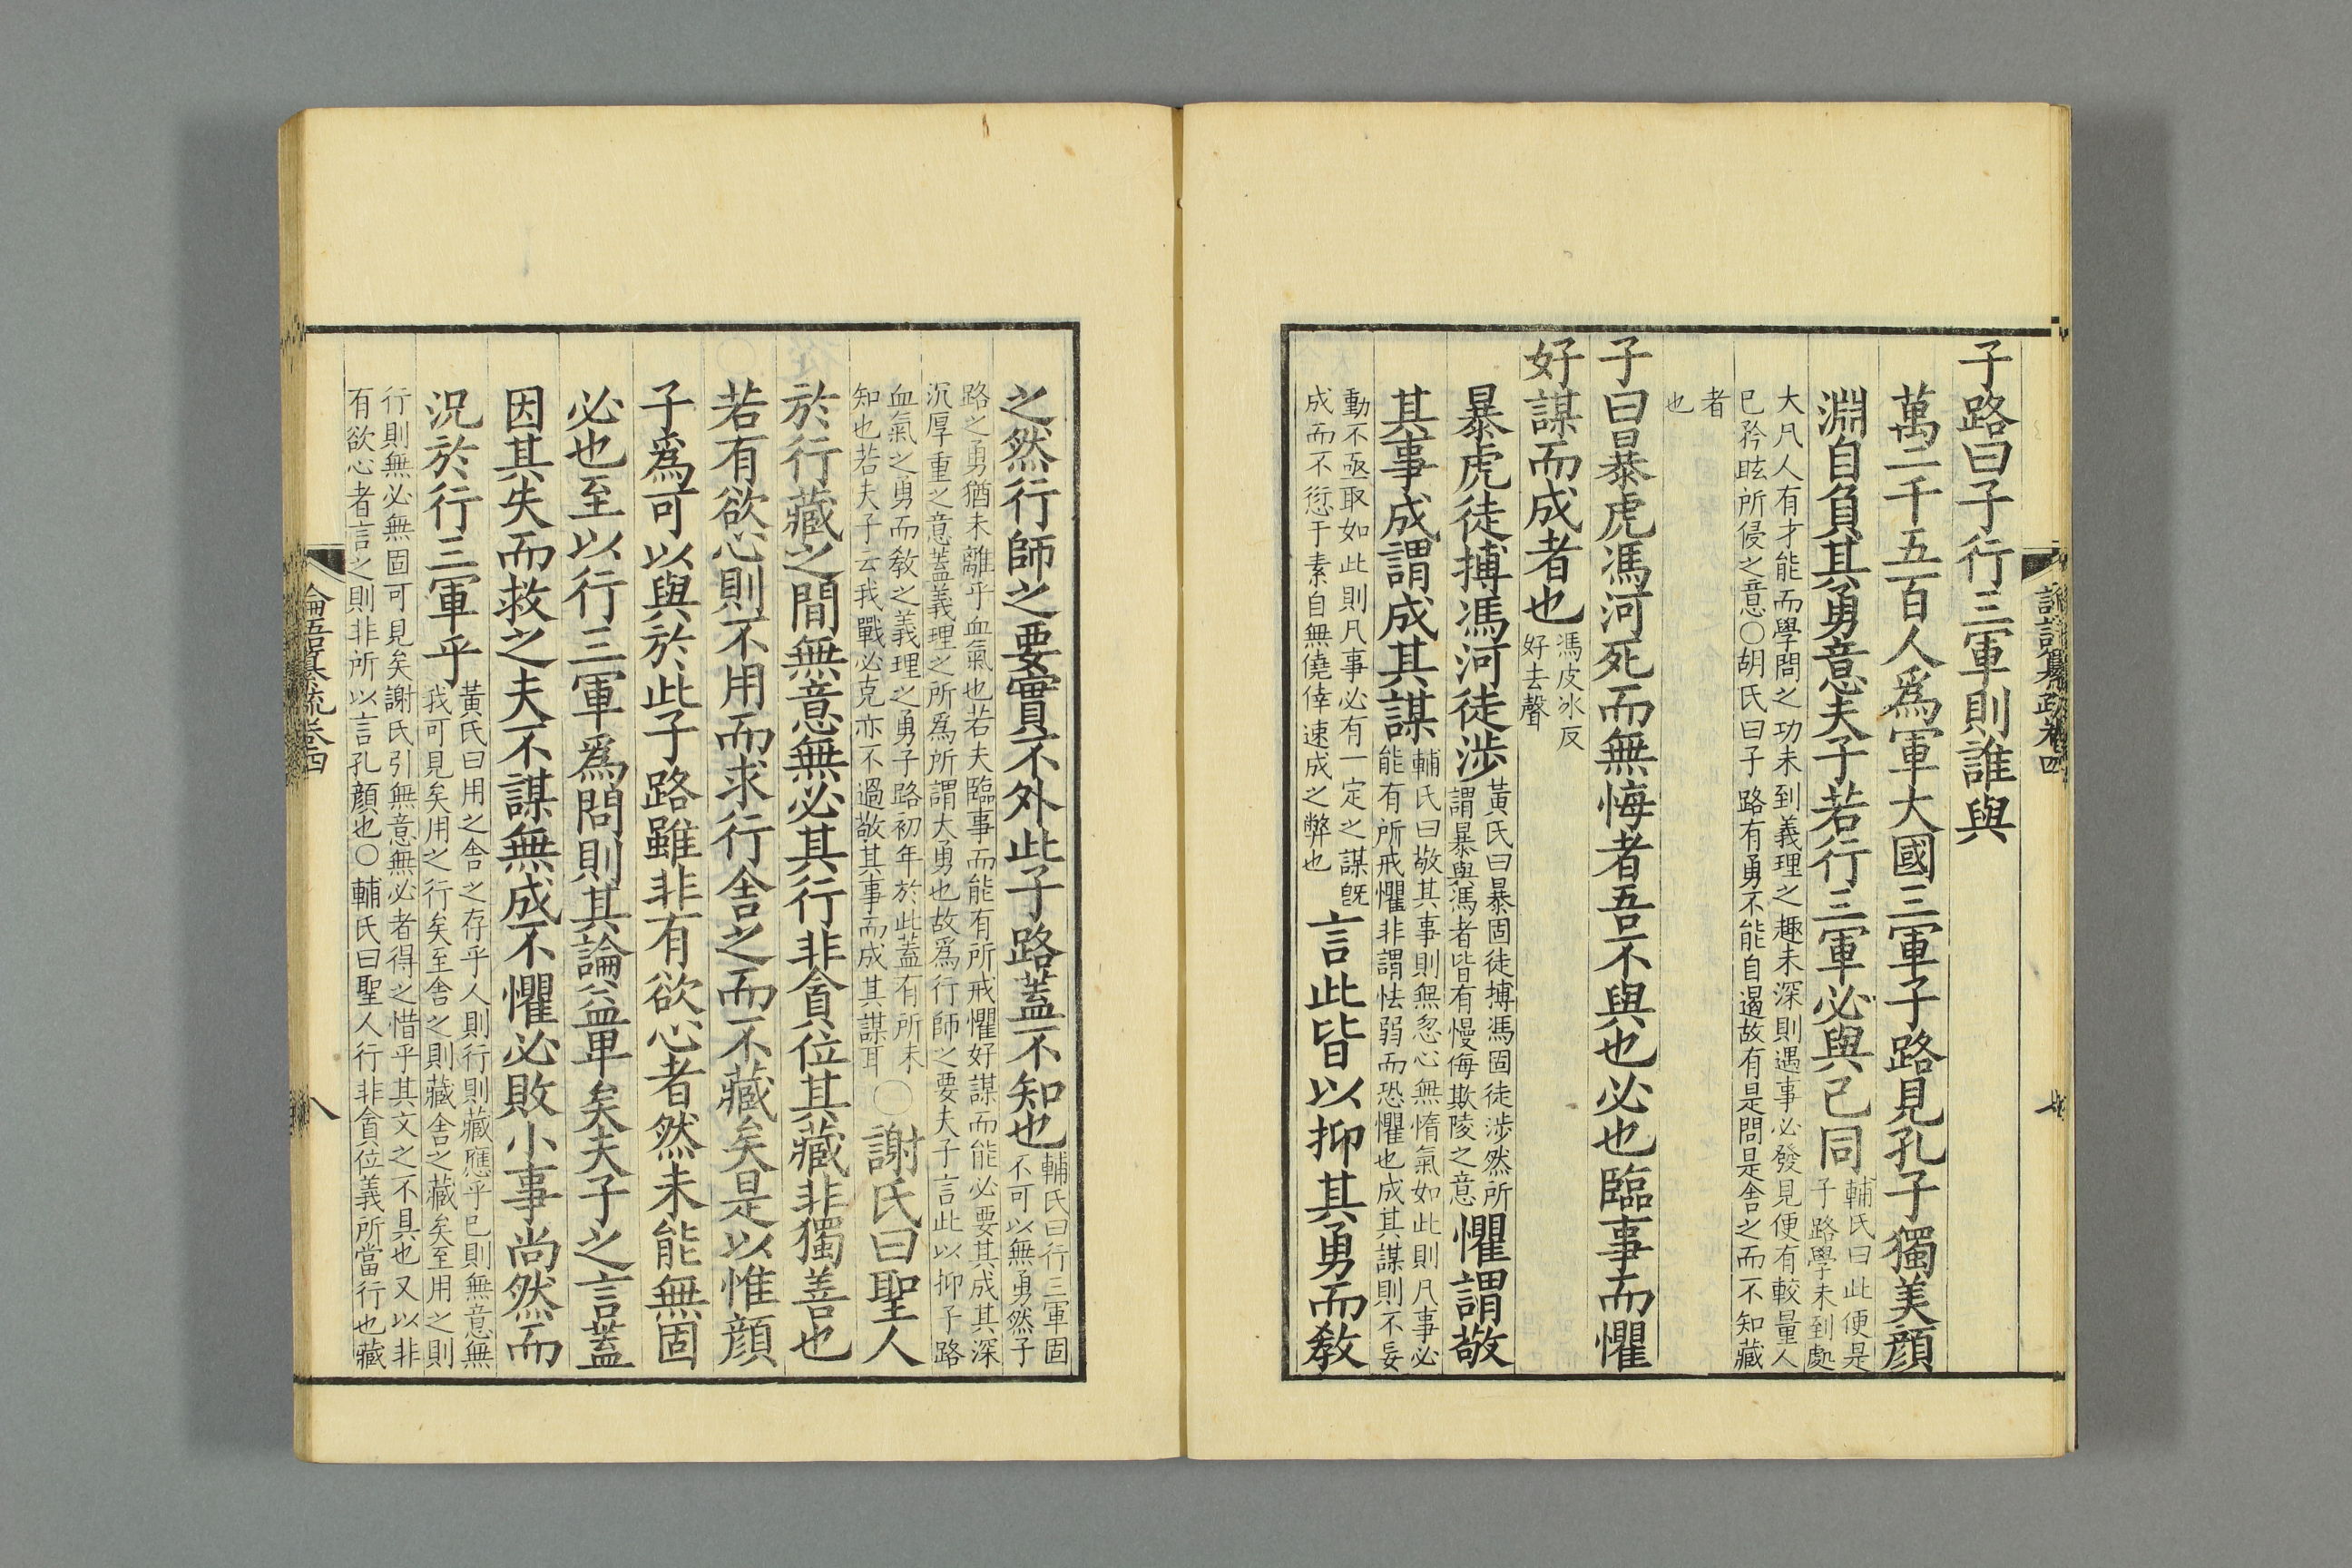 子路曰子行三軍則誰與
萬二千五百人爲軍大國三軍子路見孔子獨美顔
淵自負其勇意夫子若行三軍必與己同
輔氏曰此便是
子路學未到處
大凡人有才能而學問之功未到義理之趣未深則遇事必發見便有較量人
己矜眩所侵之意○胡氏曰子路有勇不能自遏故有是問是舍之而不知藏
者
也
子曰暴虎馮河死而無悔者吾不與也必也臨事而懼
好謀而成者也
馮皮氷反
好去聲
暴虎徒搏馮河徒涉
黃氏曰暴固徒搏馮固徒涉然所
謂暴與馮者皆有慢侮欺陵之意
懼謂敬
其事成謂成其謀
輔氏曰敬其事則無忽心無惰氣如此則凡事必
能有所戒懼非謂怯弱而恐懼也成其謀則不妄
動不亟取如此則凡事必有一定之謀旣
成而不愆于素自無僥倖速成之弊也
言此皆以抑其勇而敎
之然行師之要實不外此子路蓋不知也
輔氏曰行三軍固
不可以無勇然子
路之勇猶未離乎血氣也若夫臨事而能有所戒懼好謀而能必要其成其深
沉厚重之意蓋義理之所爲所謂大勇也故爲行師之要夫子言此以抑子路
血氣之勇而敎之義理之勇子路初年於此蓋有所未
知也若夫子云我戰必克亦不過敬其事而成其謀耳
○謝氏曰聖人
於行藏之間無意無必其行非貪位其藏非獨善也
若有欲心則不用而求行舍之而不藏矣是以惟顔
子爲可以與於此子路雖非有欲心者然未能無固
必也至以行三軍爲問則其論益卑矣夫子之言蓋
因其失而救之夫不謀無成不懼必敗小事尚然而
況於行三軍乎
黃氏曰用之舍之存乎人則行則藏應乎己則無意無
我可見矣用之行矣至舍之則藏舍之藏矣至用之則
行則無必無固可見矣謝氏引無意無必者得之惜乎其文之不具也又以非
有欲心者言之則非所以言孔顔也○輔氏曰聖人行非貪位義所當行也藏
八